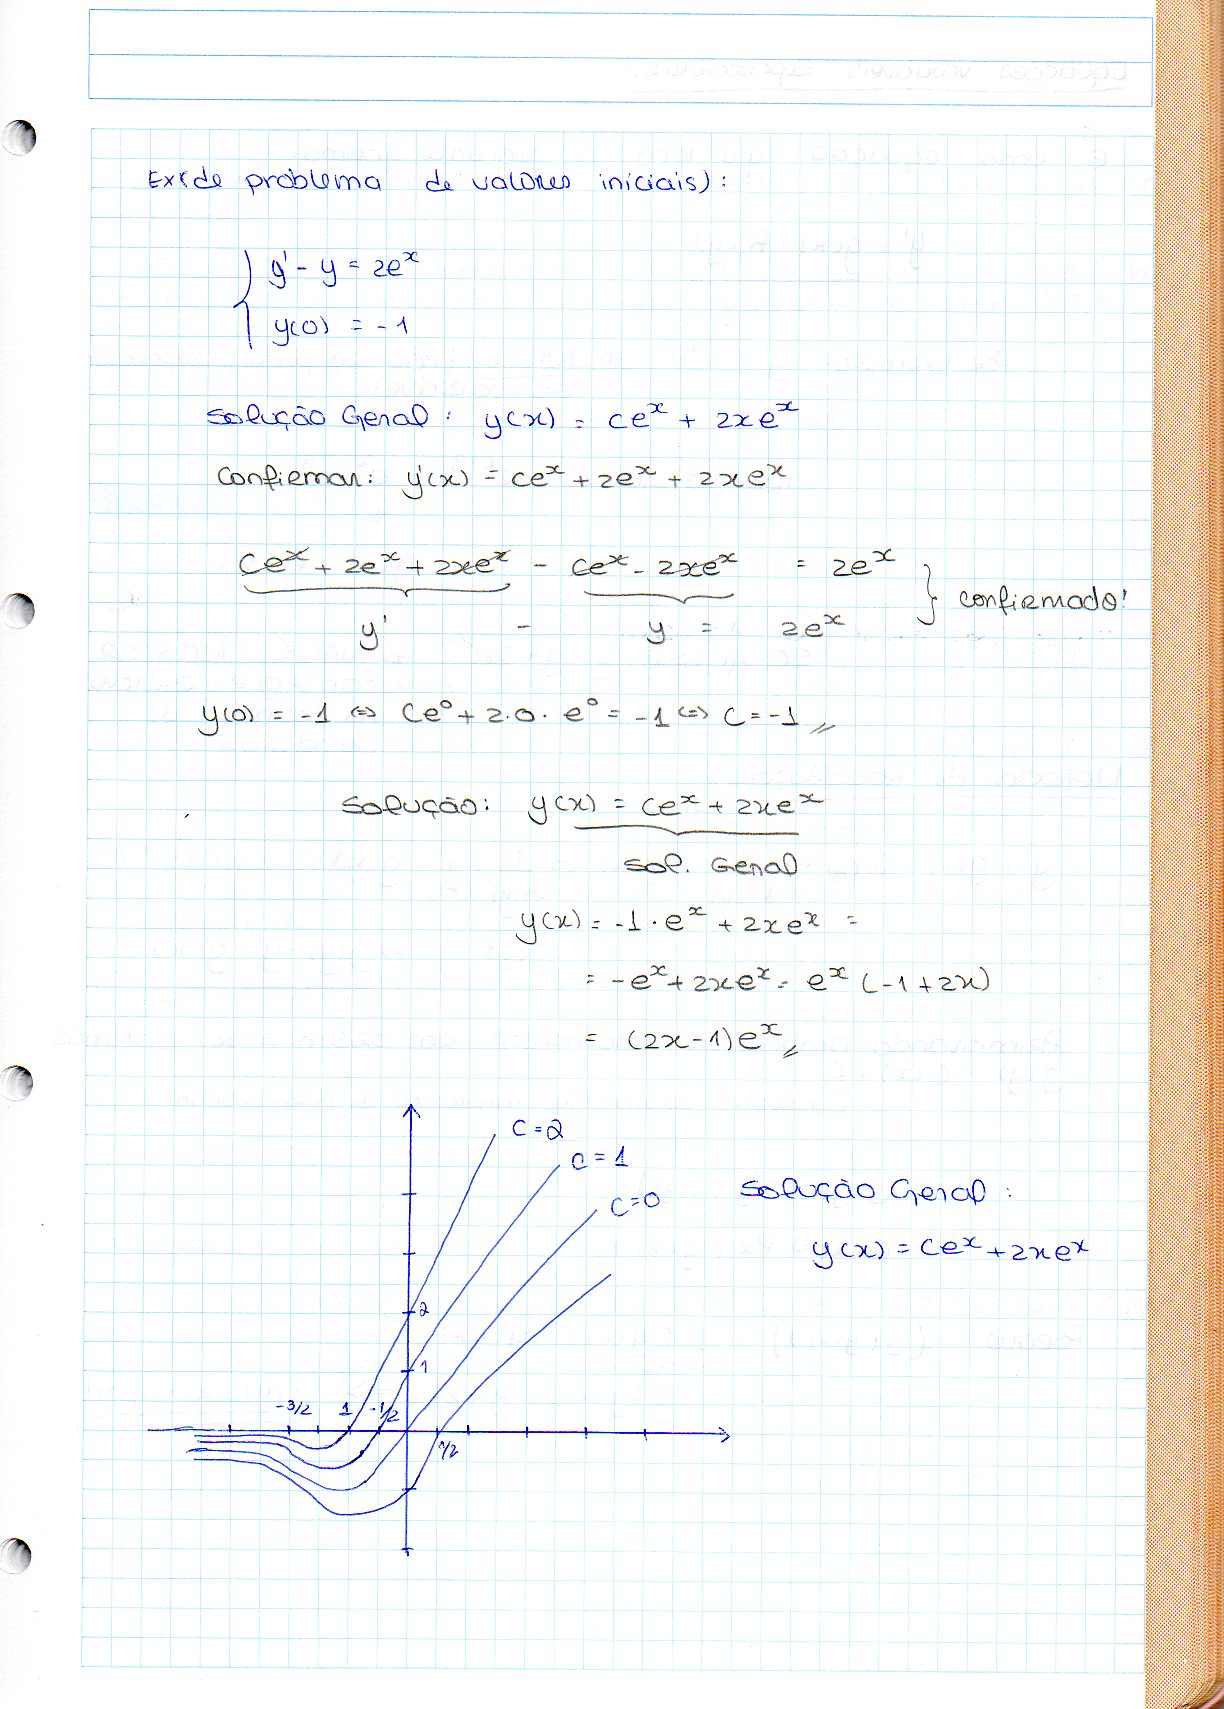 Ex(de problema de valores iniciais):
y' - y = 2e^x
y(0) = -1
Solução Geral: y(x) = ce^x + 2xe^x
Confirmar: y'(x) = ce^x + 2e^x + 2xe^x
ce^x + 2e^x + 2xe^x - ce^x - 2xe^x = 2e^x
y' - y = 2e^x } confirmado!
y(0) = -1 ⇔ Ce^0 + 2.0.e^0 = -1 ⇔ C = -1 //
Solução: y(x) = ce^x + 2xe^x
Sol. Geral
y(x) = -1 · e^x + 2xe^x =
= -e^x + 2xe^x = e^x (-1 + 2x)
= (2x-1)e^x //
C=2
C=1
C=0
Solução Geral:
y(x) = Ce^x + 2xe^x
2
1
-3/2 1 -1/2
1/2